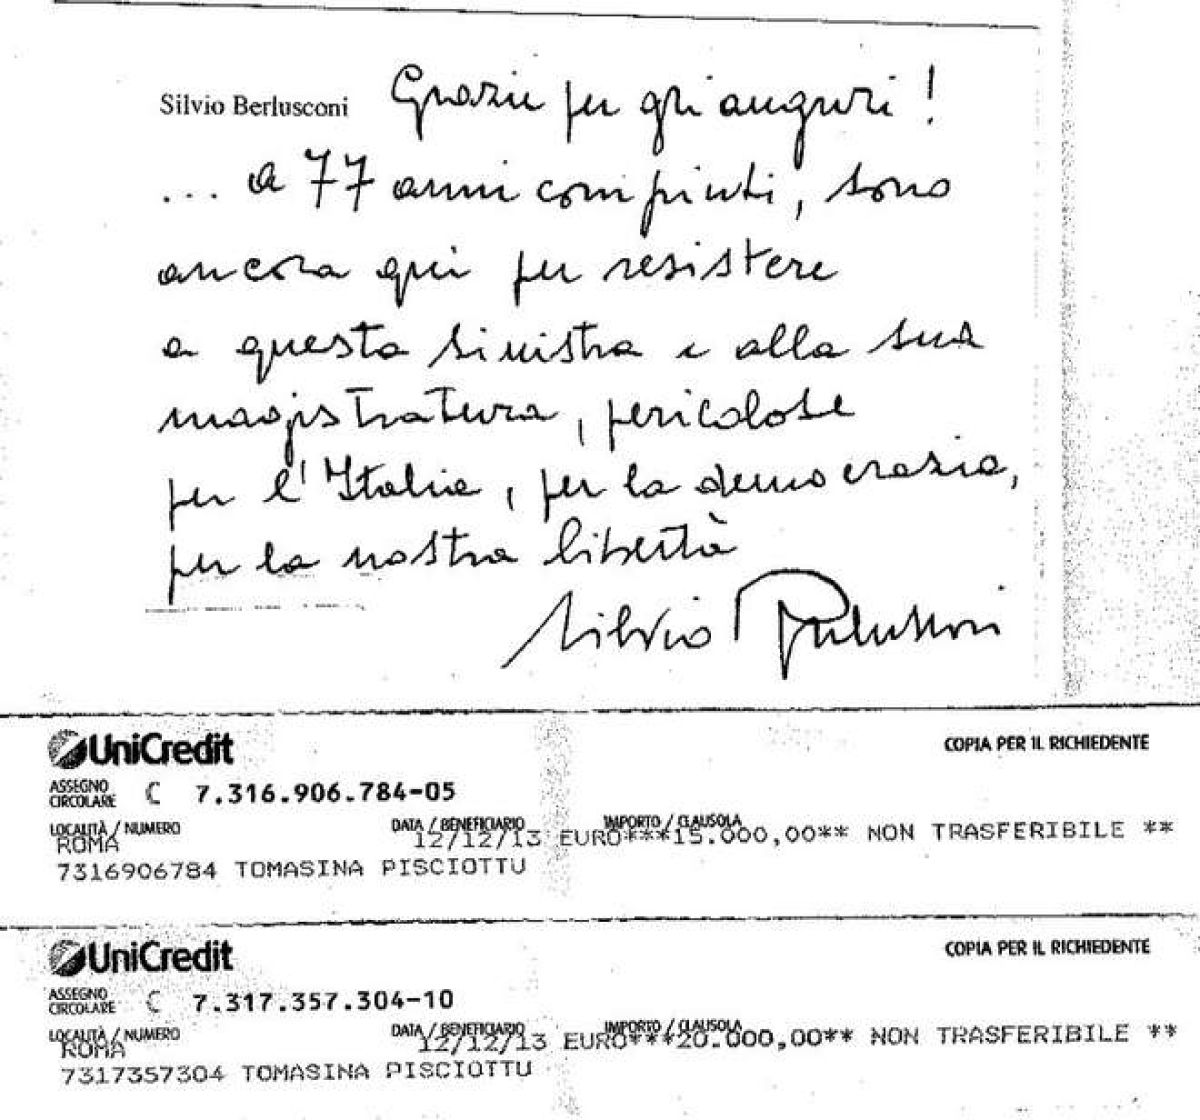 Silvio Berlusconi Grazie per gli auguri!
... a 77 anni compiuti, sono
ancora qui per resistere
a questa sinistra e alla sua
magistratura, pericolose
per l'Italia, per la democrazia,
per la nostra libertà
Silvio Berlusconi
UniCredit COPIA PER IL RICHIEDENTE
ASSEGNO
CIRCOLARE C 7.316.906.784-05
LOCALITÀ / NUMERO DATA / BENEFICIARIO IMPORTO / CLAUSOLA
ROMA 12/12/13 EURO***15.000,00** NON TRASFERIBILE **
7316906784 TOMASINA PISCIOTTU
UniCredit COPIA PER IL RICHIEDENTE
ASSEGNO
CIRCOLARE C 7.317.357.304-10
LOCALITÀ / NUMERO DATA / BENEFICIARIO IMPORTO / CLAUSOLA
ROMA 12/12/13 EURO***20.000,00** NON TRASFERIBILE **
7317357304 TOMASINA PISCIOTTU